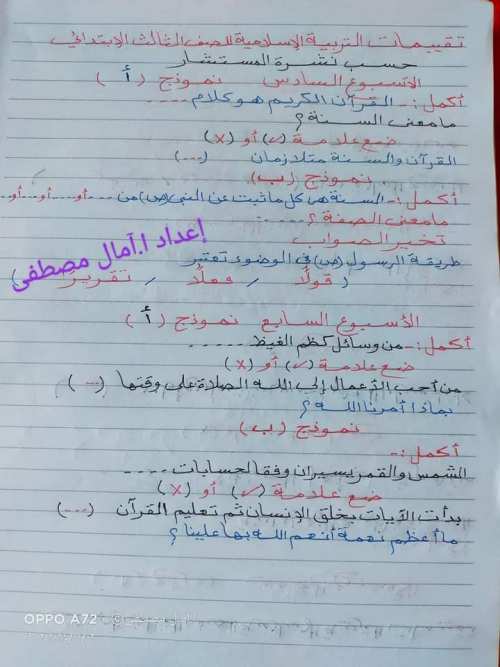 تقييمات التربية الإسلامية للصف الثالث الابتدائي
حسب نشرة المستشار
الأسبوع السادس نموذج (أ)
أكمل:- القرآن الكريم هو كلام ....
ما معنى السنة؟
ضع علامة (✓) أو (x)
القرآن والسنة متلازمان (...)
نموذج (ب)
أكمل:- السنة هى كل ما ثبت عن النبى (ص) من ... أو ... أو ... أو ...
ما معنى الصفة؟ .....
تخير الصواب
طريقة الرسول (ص) فى الوضوء تعتبر
(قولًا / فعلًا / تقرير)
إعداد أ.آمال مصطفى
الأسبوع السابع نموذج (أ)
أكمل:- من وسائل كظم الغيظ ......
ضع علامة (✓) أو (x)
من أحب الأعمال إلى الله الصلاة على وقتها (...)
بماذا أمرنا الله؟
نموذج (ب)
أكمل:-
الشمس والقمر يسيران وفقا لحسابات ....
ضع علامة (✓) أو (x)
بدأت الآيات بخلق الإنسان ثم تعليم القرآن (...)
ما أعظم نعمة أنعم الله بها علينا؟
OPPO A72